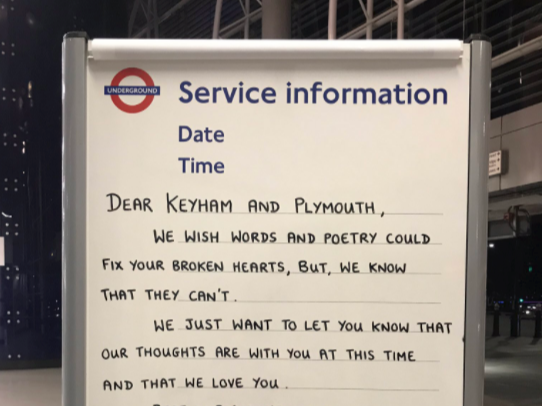 UNDERGROUND
Service information
Date
Time
DEAR KEYHAM AND PLYMOUTH,
WE WISH WORDS AND POETRY COULD
FIX YOUR BROKEN HEARTS, BUT, WE KNOW
THAT THEY CAN'T.
WE JUST WANT TO LET YOU KNOW THAT
OUR THOUGHTS ARE WITH YOU AT THIS TIME
AND THAT WE LOVE YOU.